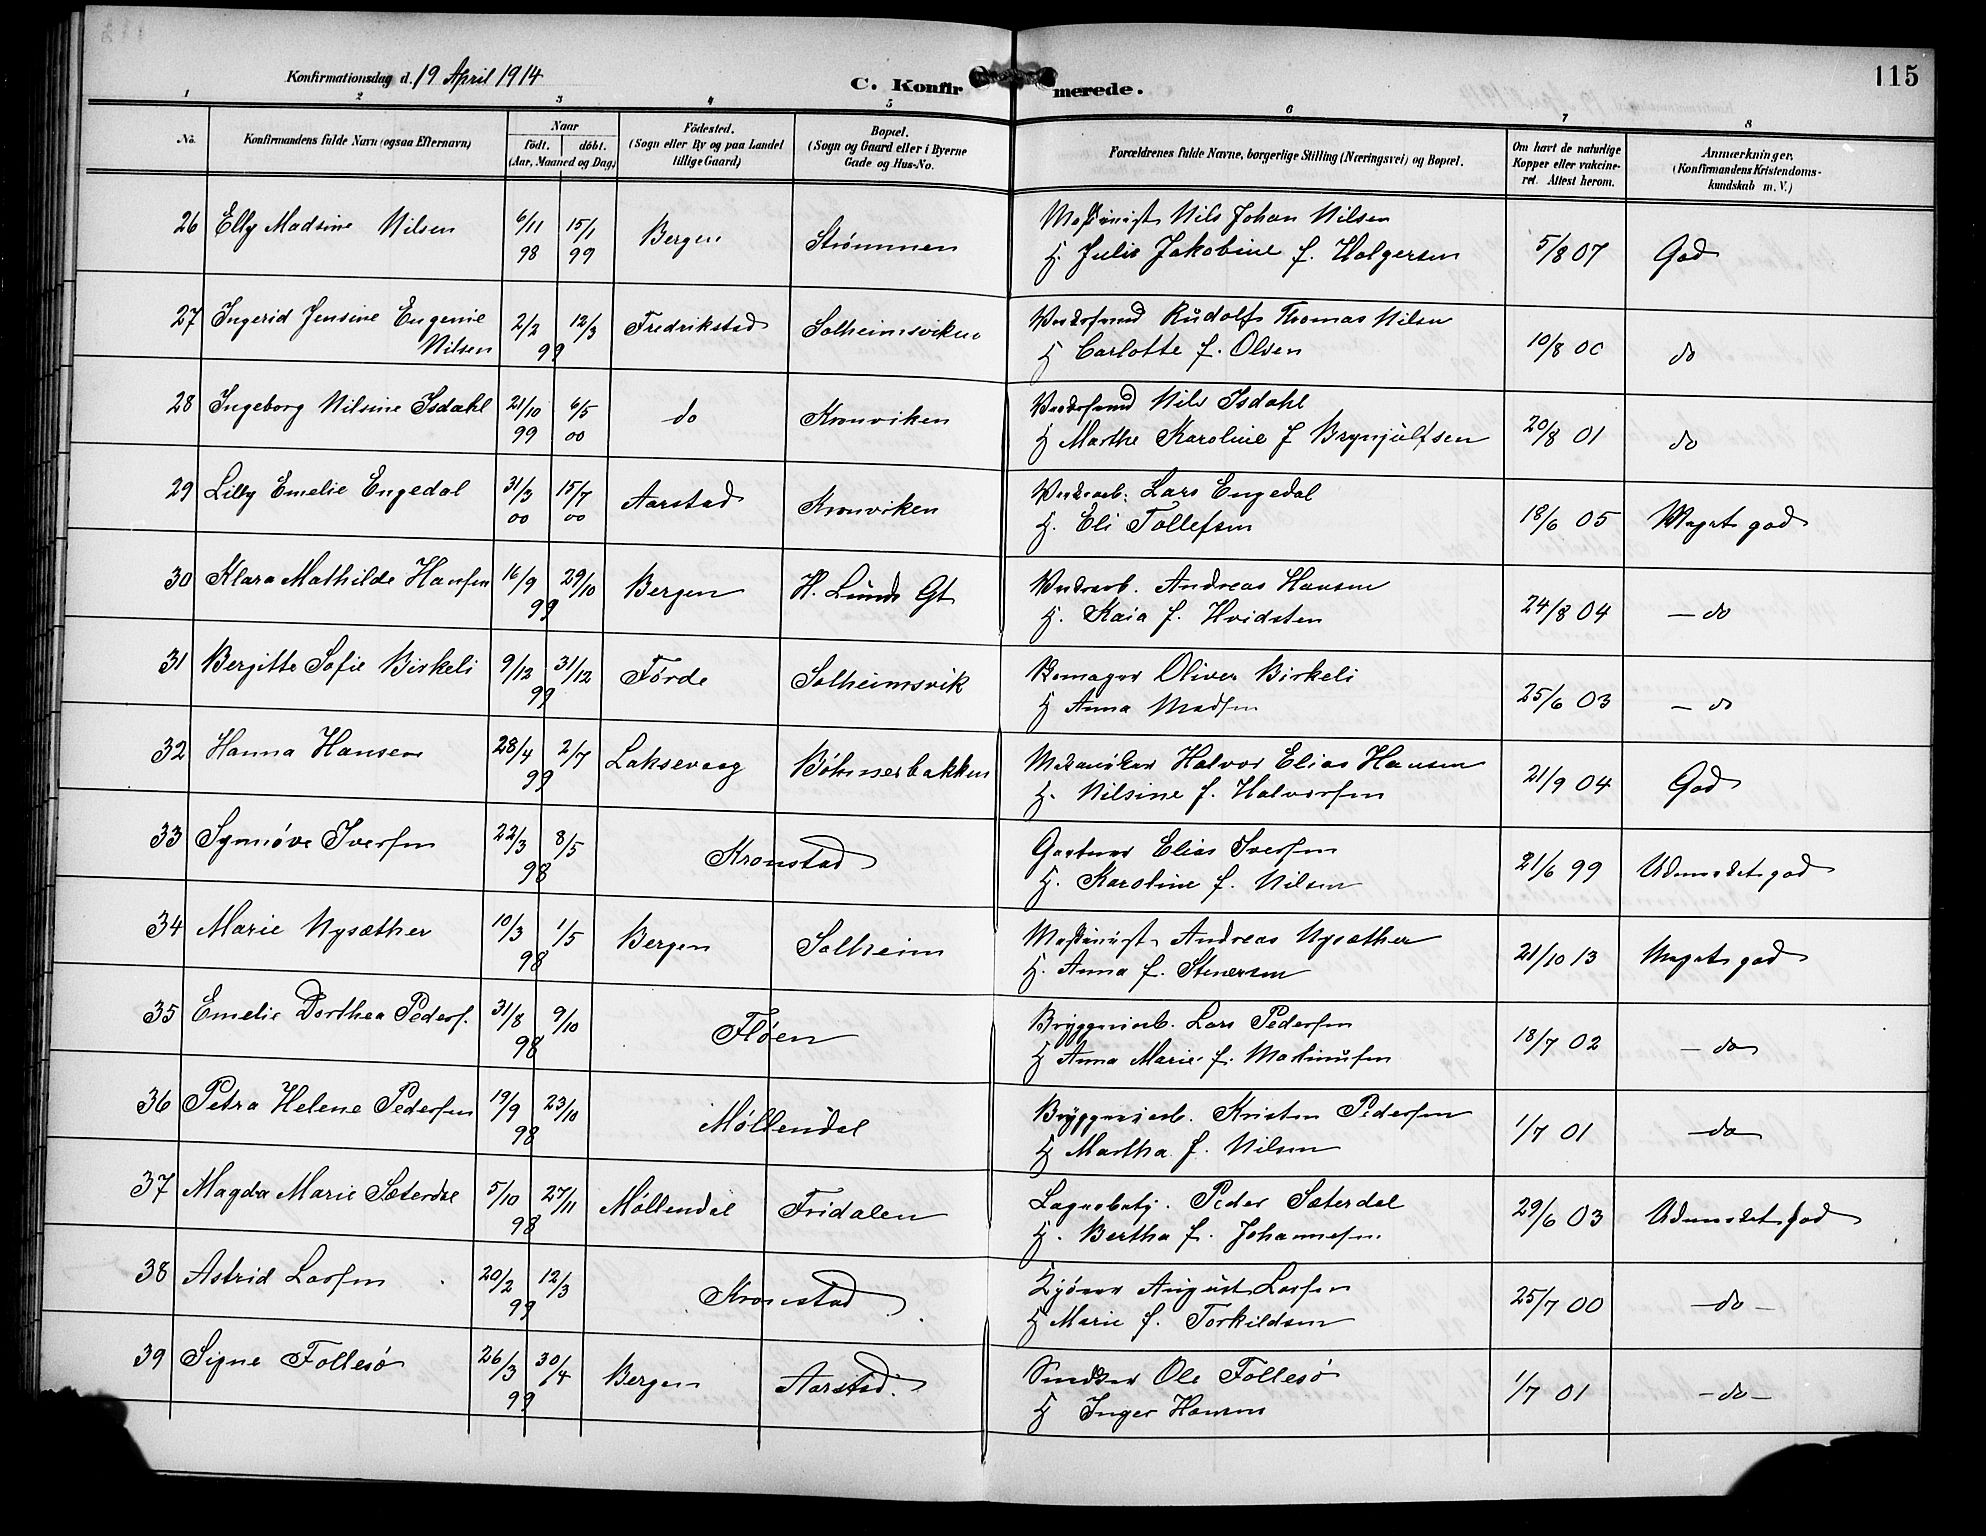 115
Konfirmationsdag d. 19 April 1914
C. Konfirmerede.
1 2 3 4 5 6 7 8
No. | Konfirmandens fulde Navn (ogsaa Efternavn) | Naar født. døbt. (Aar, Maaned og Dag) | Födested. (Sogn eller By og paa Landet tillige Gaard) | Bopæl. (Sogn og Gaard eller i Byerne Gade og Hus-No. | Forældrenes fulde Navne, borgerlige Stilling (Næringsvei) og Bopæl. | Om havt de naturlige Kopper eller vakcineret. Attest herom. | Anmærkninger. (Konfirmandens Kristendomskundskab m. V.)
26 Elly Madsine Nilsen 6/11 98 15/1 99 Bergen Strømmen Maskinist Nils Johan Nilsen
H. Julie Jakobine f. Holgersen 5/8 07 God
27 Ingerid Jensine Eugenie 2/2 12/3 Fredrikstad Solheimsviken Rudolf Thomas Nilsen
Nilsen 99 H Carlotte f. Olsen 10/8 00 do
28 Ingeborg Nilsine Isdahl 21/10 99 6/5 00 do Kronviken Nils Isdahl
H Marthe Karoline f Brynjulfsen 20/8 01 do
29 Lilly Emelie Engedal 31/3 00 15/7 00 Aarstad Kronviken Lars Engedal
H. Eli Tollefsen 18/6 05 Meget god
30 Klara Mathilde Hansen 16/9 29/10 99 Bergen H. Lunds Gt Andreas Hansen
H. Kaia f. Hvidsten 24/8 04 - do
31 Bergitte Sofie Birkeli 9/12 31/12 99 Førde Solheimsvik Oliver Birkeli
H Anna Madsen 25/6 03 - do
32 Hanna Hansen 28/4 2/7 99 Laksevaag Bøhmerbakken Mekaniker Halvor Elias Hansen
H. Nilsine f. Halvorsen 21/9 04 God
33 Synnøve Iversen 22/3 8/5 98 Kronstad Gartner Elias Iversen
H. Karoline f. Nilsen 21/6 99 Udmerket god
34 Marie Nysæther 10/3 1/5 98 Bergen Solheim Maskinist Andreas Nysæther
H. Anna f. Stenersen 21/10 13 Meget god
35 Emelie Dorthea Peders. 31/8 9/10 98 Fløen Bryggeriarb. Lars Pedersen
H Anna Marie f. Martinusen 18/7 02 - do
36 Petra Helene Pedersen 19/9 23/10 98 Møllendal Bryggeriarb. Kristen Pedersen
H Martha f. Nilsen 1/7 01 - do
37 Magda Marie Sæterdal 5/10 27/11 98 Møllendal Fridalen Lagerbetj. Peder Sæterdal
H. Bertha f. Johannesen 29/6 03 Udmerket god
38 Astrid Larsen 20/2 12/3 99 Kronstad August Larsen
H Marie f. Torkildsen 25/7 00 - do -
39 Signe Follesø 26/3 30/4 99 Bergen Aarstad. Snedker Ole Follesø
H Inger Hansen 1/7 01 - do -